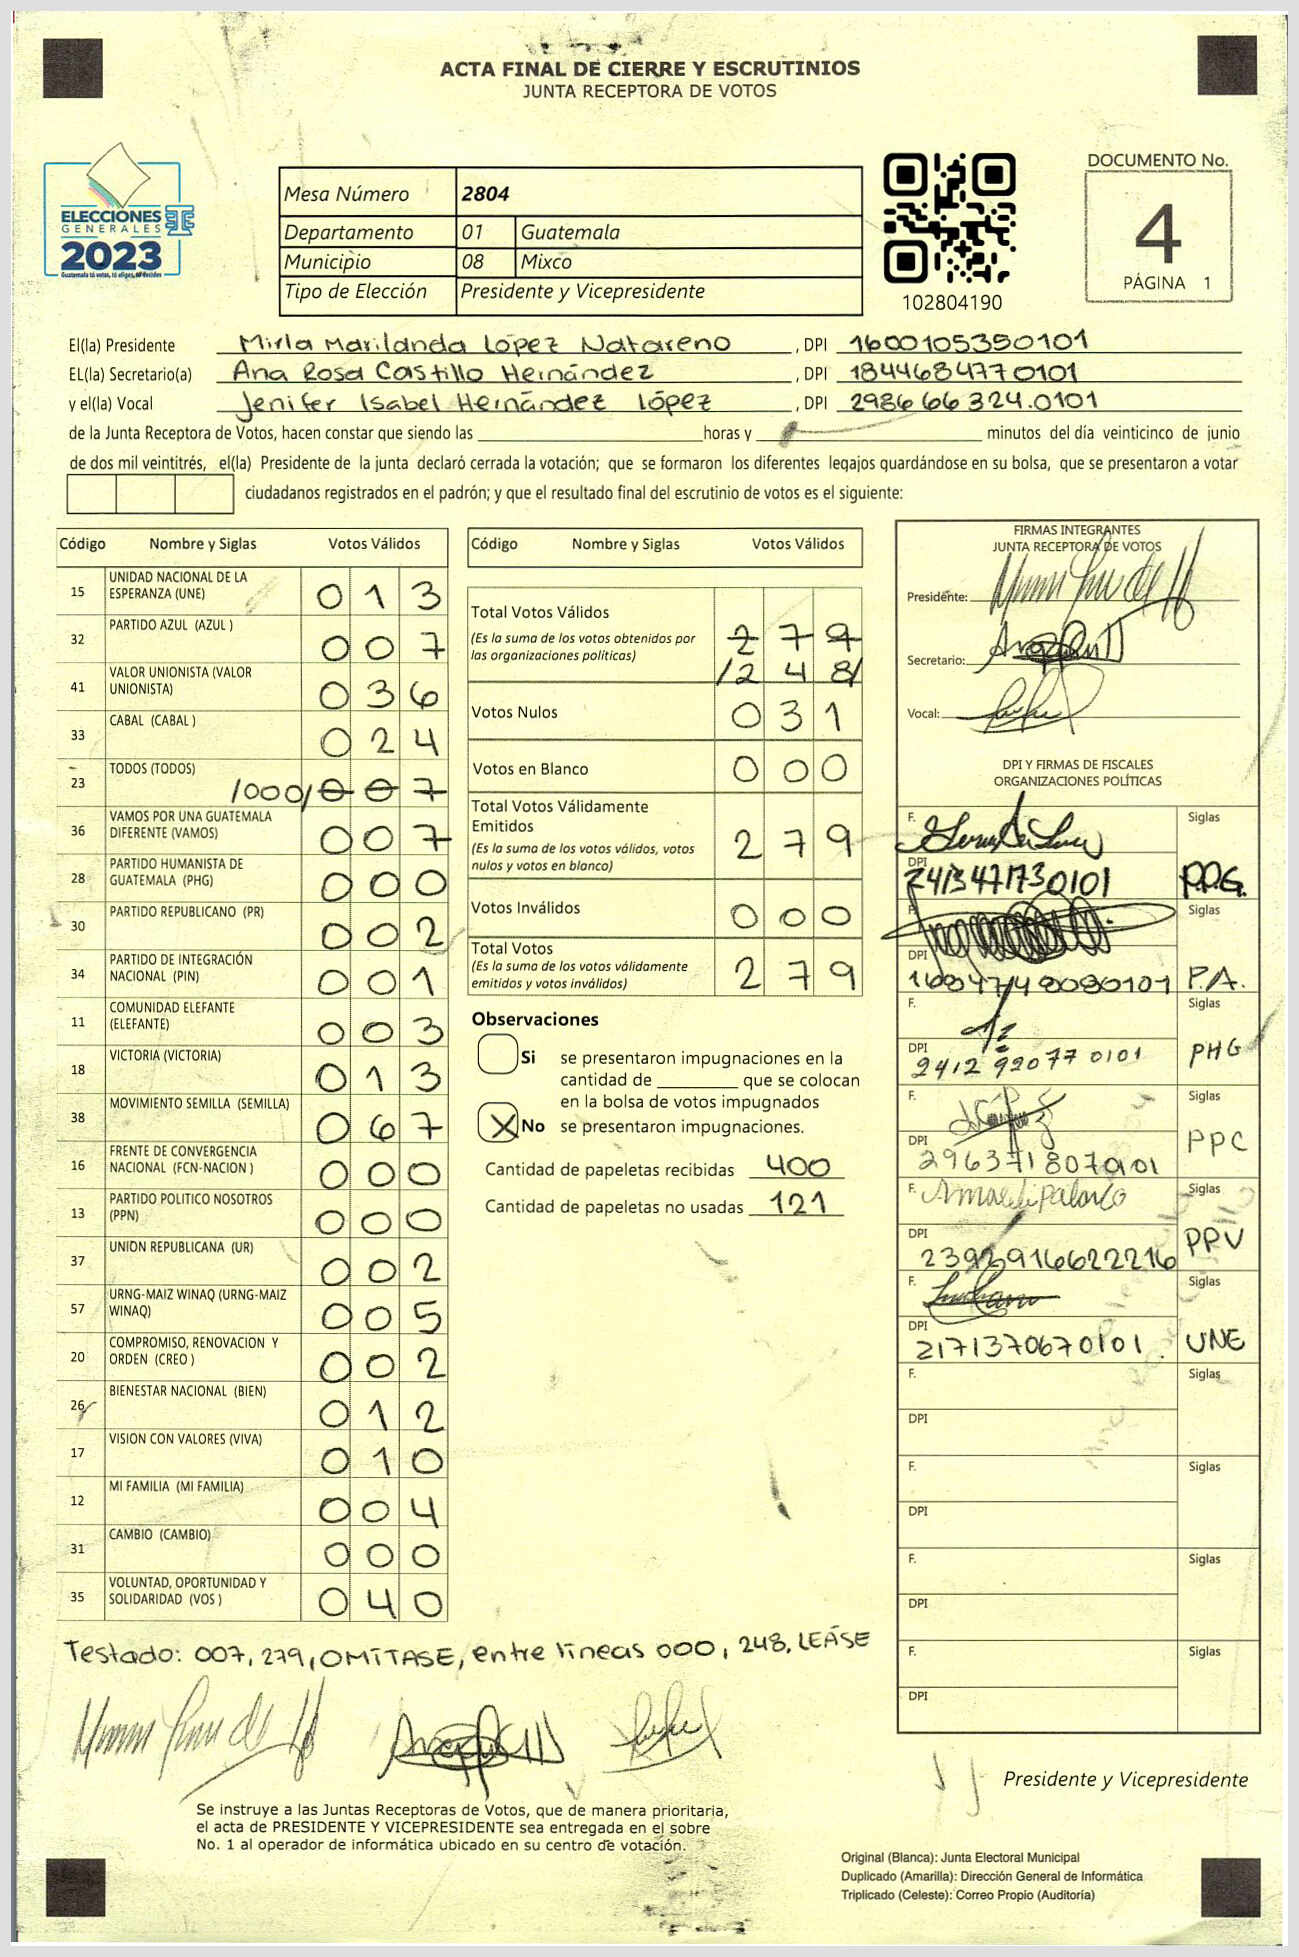 ACTA FINAL DE CIERRE Y ESCRUTINIOS
JUNTA RECEPTORA DE VOTOS
ELECCIONES
GENERALES
2023
Guatemala tú votas, tú eliges, tú decides
Mesa Número 2804
Departamento 01 Guatemala
Municipio 08 Mixco
Tipo de Elección Presidente y Vicepresidente
102804190
DOCUMENTO No.
4
PÁGINA 1
El(la) Presidente Mirla Marilanda López Natareno, DPI 1600105350101
EL(la) Secretario(a) Ana Rosa Castillo Hernández, DPI 1844684770101
y el(la) Vocal Jenifer Isabel Hernández López, DPI 298666324.0101
de la Junta Receptora de Votos, hacen constar que siendo las horas y minutos del día veinticinco de junio
de dos mil veintitrés, el(la) Presidente de la junta declaró cerrada la votación; que se formaron los diferentes legajos quardándose en su bolsa, que se presentaron a votar
ciudadanos registrados en el padrón; y que el resultado final del escrutinio de votos es el siguiente:
Código Nombre y Siglas Votos Válidos
15 UNIDAD NACIONAL DE LA ESPERANZA (UNE) 013
32 PARTIDO AZUL (AZUL ) 007
41 VALOR UNIONISTA (VALOR UNIONISTA) 036
33 CABAL (CABAL ) 024
23 TODOS (TODOS) /000/ 007
36 VAMOS POR UNA GUATEMALA DIFERENTE (VAMOS) 007
28 PARTIDO HUMANISTA DE GUATEMALA (PHG) 000
30 PARTIDO REPUBLICANO (PR) 002
34 PARTIDO DE INTEGRACIÓN NACIONAL (PIN) 001
11 COMUNIDAD ELEFANTE (ELEFANTE) 003
18 VICTORIA (VICTORIA) 013
38 MOVIMIENTO SEMILLA (SEMILLA) 067
16 FRENTE DE CONVERGENCIA NACIONAL (FCN-NACION ) 000
13 PARTIDO POLITICO NOSOTROS (PPN) 000
37 UNION REPUBLICANA (UR) 002
57 URNG-MAIZ WINAQ (URNG-MAIZ WINAQ) 005
20 COMPROMISO, RENOVACION Y ORDEN (CREO ) 002
26 BIENESTAR NACIONAL (BIEN) 012
17 VISION CON VALORES (VIVA) 010
12 MI FAMILIA (MI FAMILIA) 004
31 CAMBIO (CAMBIO) 000
35 VOLUNTAD, OPORTUNIDAD Y SOLIDARIDAD (VOS ) 040
Código Nombre y Siglas Votos Válidos
Total Votos Válidos 279
(Es la suma de los votos obtenidos por
las organizaciones políticas) /248/
Votos Nulos 031
Votos en Blanco 000
Total Votos Válidamente
Emitidos
(Es la suma de los votos válidos, votos
nulos y votos en blanco) 279
Votos Inválidos 000
Total Votos
(Es la suma de los votos válidamente
emitidos y votos inválidos) 279
Observaciones
Si se presentaron impugnaciones en la
cantidad de que se colocan
en la bolsa de votos impugnados
X No se presentaron impugnaciones.
Cantidad de papeletas recibidas 400
Cantidad de papeletas no usadas 121
FIRMAS INTEGRANTES
JUNTA RECEPTORA DE VOTOS
Presidente:
Secretario:
Vocal:
DPI Y FIRMAS DE FISCALES
ORGANIZACIONES POLÍTICAS
F. Siglas
DPI 2413471730101 P.P.G.
F. Siglas
DPI P.A.
F. Siglas
DPI 2412 92077 0101 PHG
F. Siglas
DPI 2963718070101 PPC
F. Siglas
DPI 2392916622216 PPV
F. Siglas
DPI 2171370670101. UNE
F. Siglas
DPI
F. Siglas
DPI
F. Siglas
DPI
F. Siglas
DPI
Testado: 007, 279, OMÍTASE, entre líneas 000, 248, LEÁSE
Presidente y Vicepresidente
Se instruye a las Juntas Receptoras de Votos, que de manera prioritaria,
el acta de PRESIDENTE Y VICEPRESIDENTE sea entregada en el sobre
No. 1 al operador de informática ubicado en su centro de votación.
Original (Blanca): Junta Electoral Municipal
Duplicado (Amarilla): Dirección General de Informática
Triplicado (Celeste): Correo Propio (Auditoría)